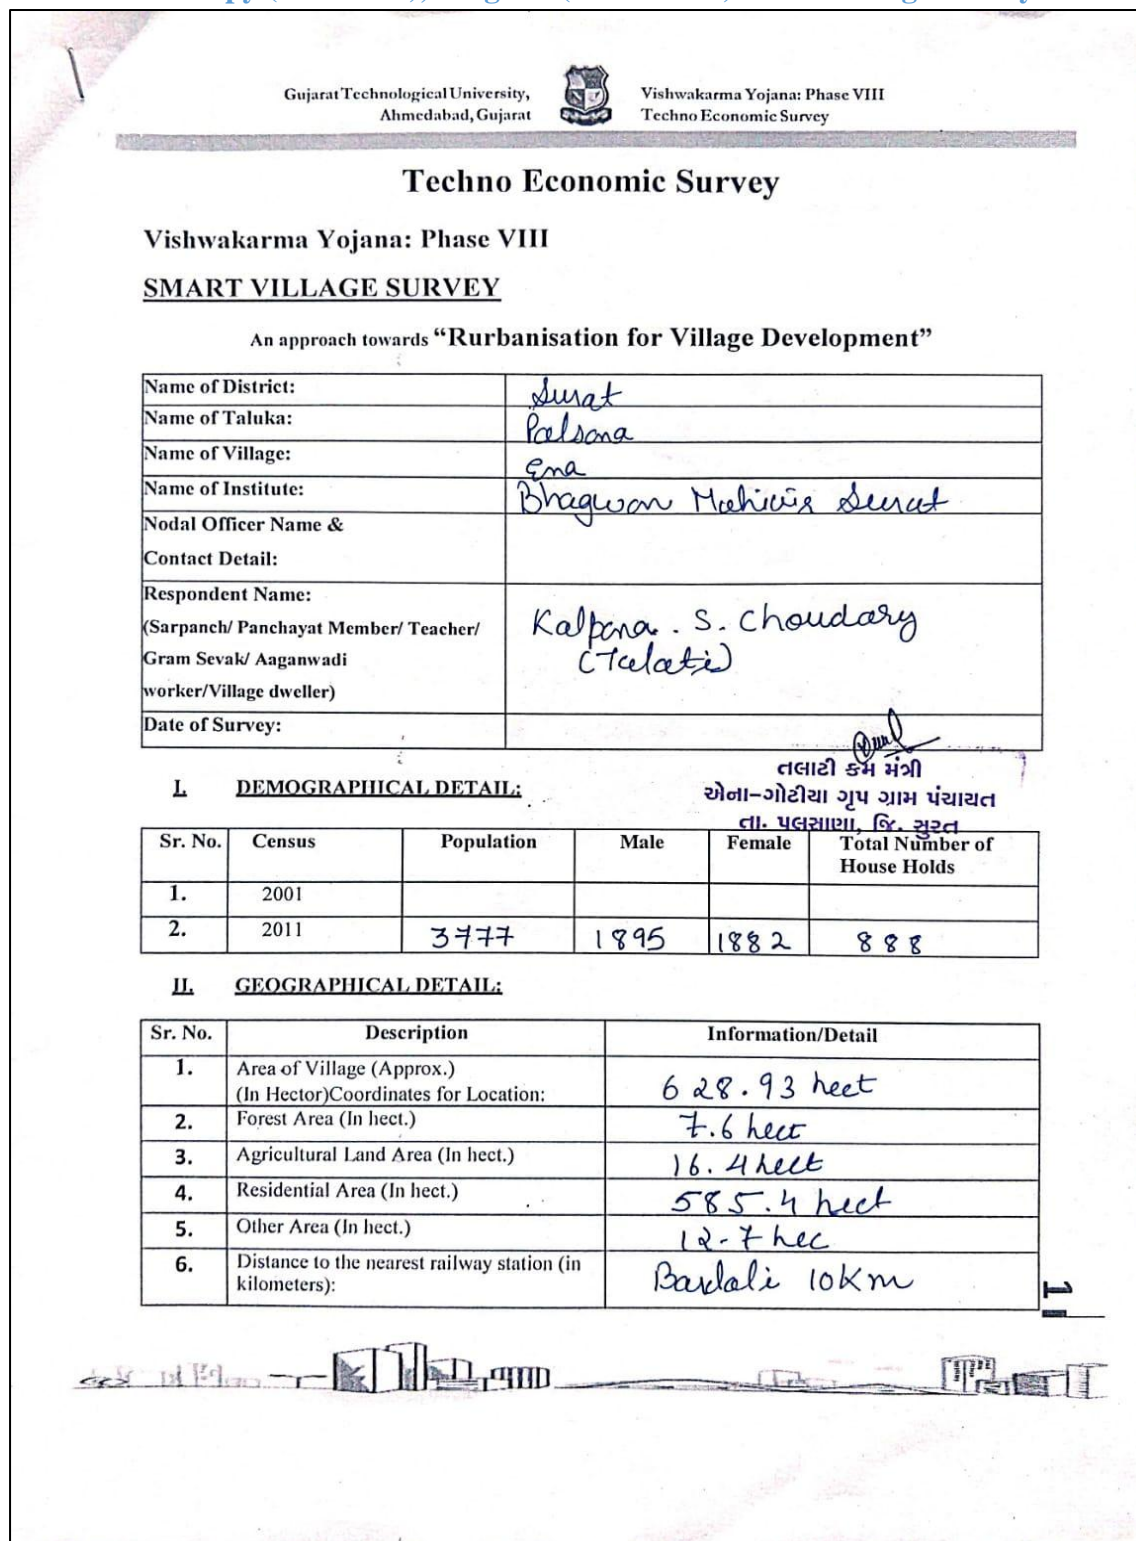 Gujarat Technological University,
Ahmedabad, Gujarat
Vishwakarma Yojana: Phase VIII
Techno Economic Survey
Techno Economic Survey
Vishwakarma Yojana: Phase VIII
SMART VILLAGE SURVEY
An approach towards “Rurbanisation for Village Development”
Name of District: Surat
Name of Taluka: Palsana
Name of Village: Ena
Name of Institute: Bhagwan Mahivir Surat
Nodal Officer Name &
Contact Detail:
Respondent Name:
(Sarpanch/ Panchayat Member/ Teacher/ Kalpana. S. Choudary
Gram Sevak/ Aaganwadi (Talati)
worker/Village dweller)
Date of Survey:
તલાટી કમ મંત્રી
એના-ગોટીયા ગૃપ ગ્રામ પંચાયત
તા. પલસાણા, જિ. સુરત
I. DEMOGRAPHICAL DETAIL:
Sr. No. Census Population Male Female Total Number of
House Holds
1. 2001
2. 2011 3777 1895 1882 888
II. GEOGRAPHICAL DETAIL:
Sr. No. Description Information/Detail
1. Area of Village (Approx.)
(In Hector)Coordinates for Location: 628.93 hect
2. Forest Area (In hect.) 7.6 hect
3. Agricultural Land Area (In hect.) 16.4 hect
4. Residential Area (In hect.) 585.4 hect
5. Other Area (In hect.) 12-7 hec
6. Distance to the nearest railway station (in
kilometers): Bardali 10Km